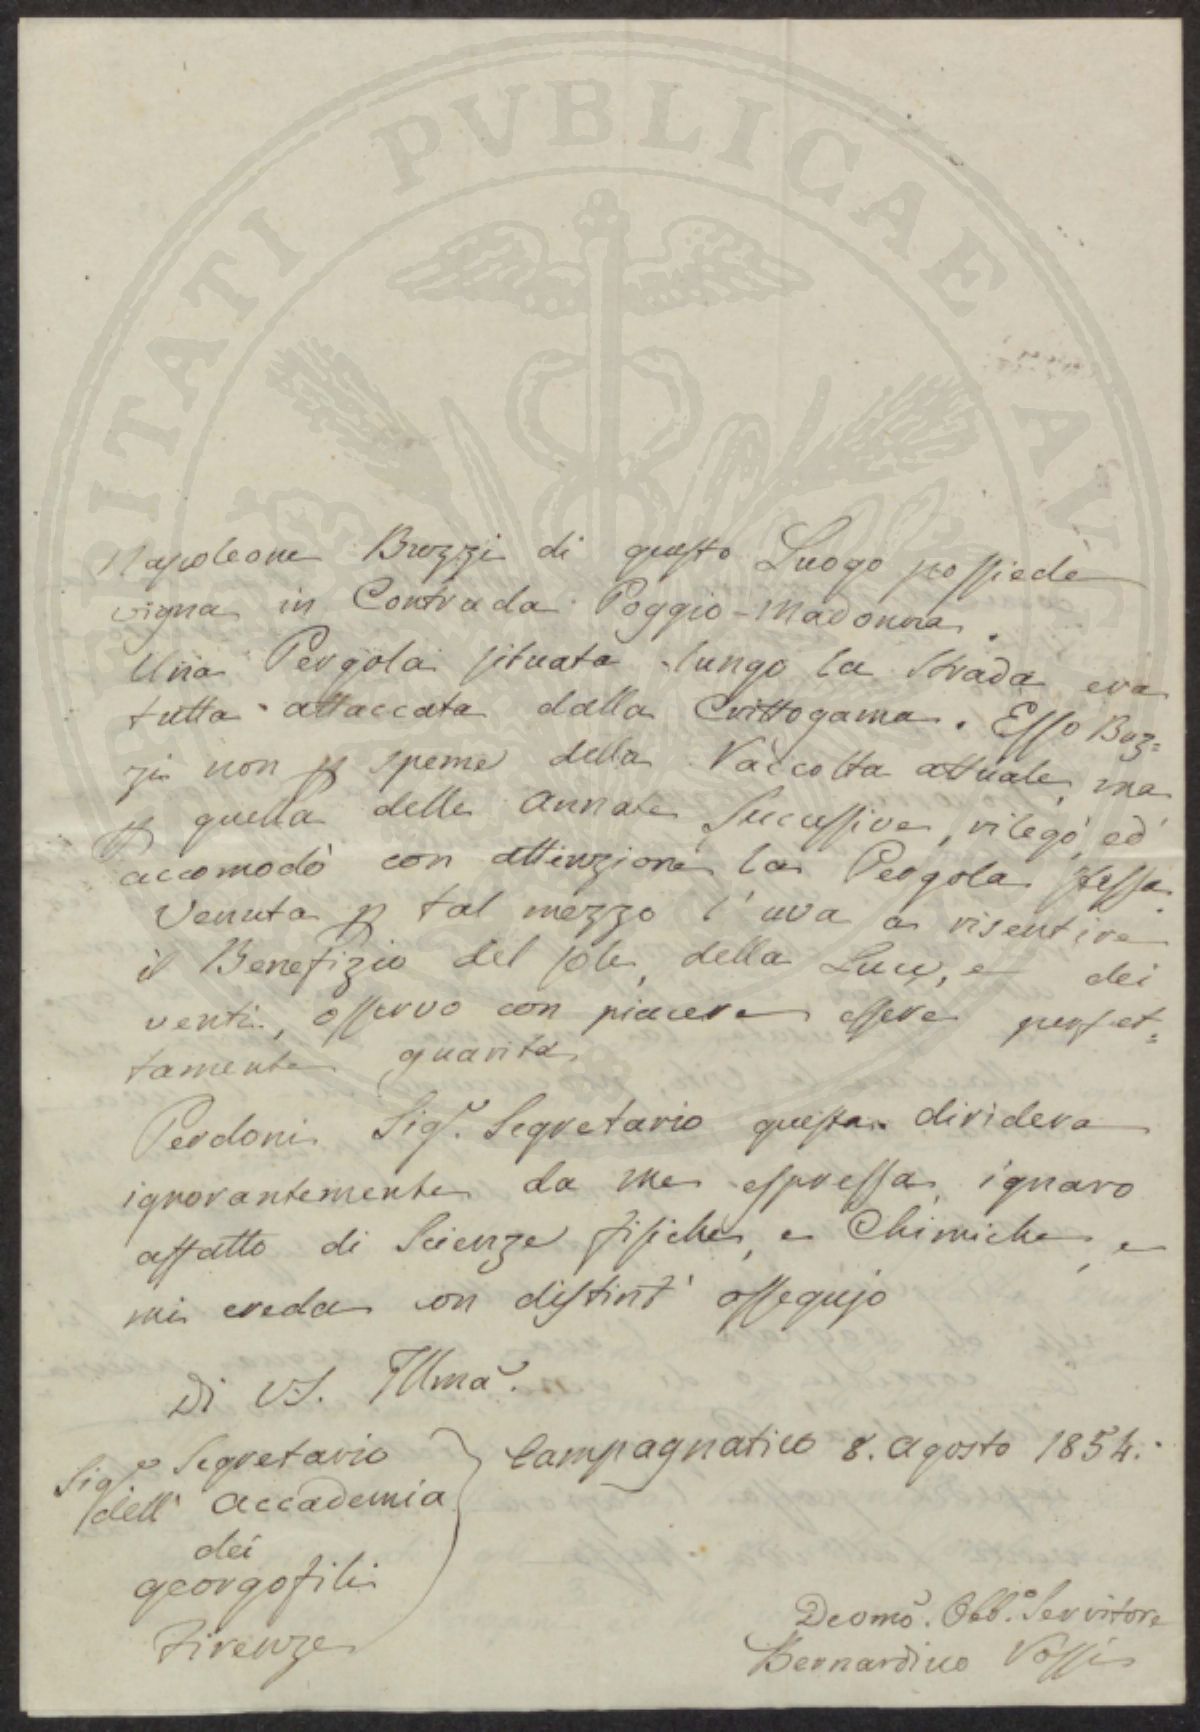 PVBLICAE
Napoleone Buzzi di questo Luogo possiede
vigna in Contrada Poggio-Madonna.
Una Pergola situata lungo la Strada era
tutta attaccata dalla Crittogama. Esso Buz=
zi non p speme della Raccolta attuale, ma
p quella delle annate successive, rilegò, ed
accomodò con attenzione la Pergola stessa.
Venuta p tal mezzo l'uva a risentire
il Benefizio del sole, della Luce, e dei
venti, osservo con piacere essere perfet=
tamente guarita
Perdoni Sigr. Segretario questa diridera
ignorantemente da me espressa, ignaro
affatto di Scienze fisiche, e Chimiche, e
mi creda con distint' ossequjo
Di VS. Illma.
Sigr Segretario
dell' accademia
dei
georgofili
Firenze
Campagnatico 8. agosto 1854.
Deomo. Obb.o Servitore
Bernardino Rossi